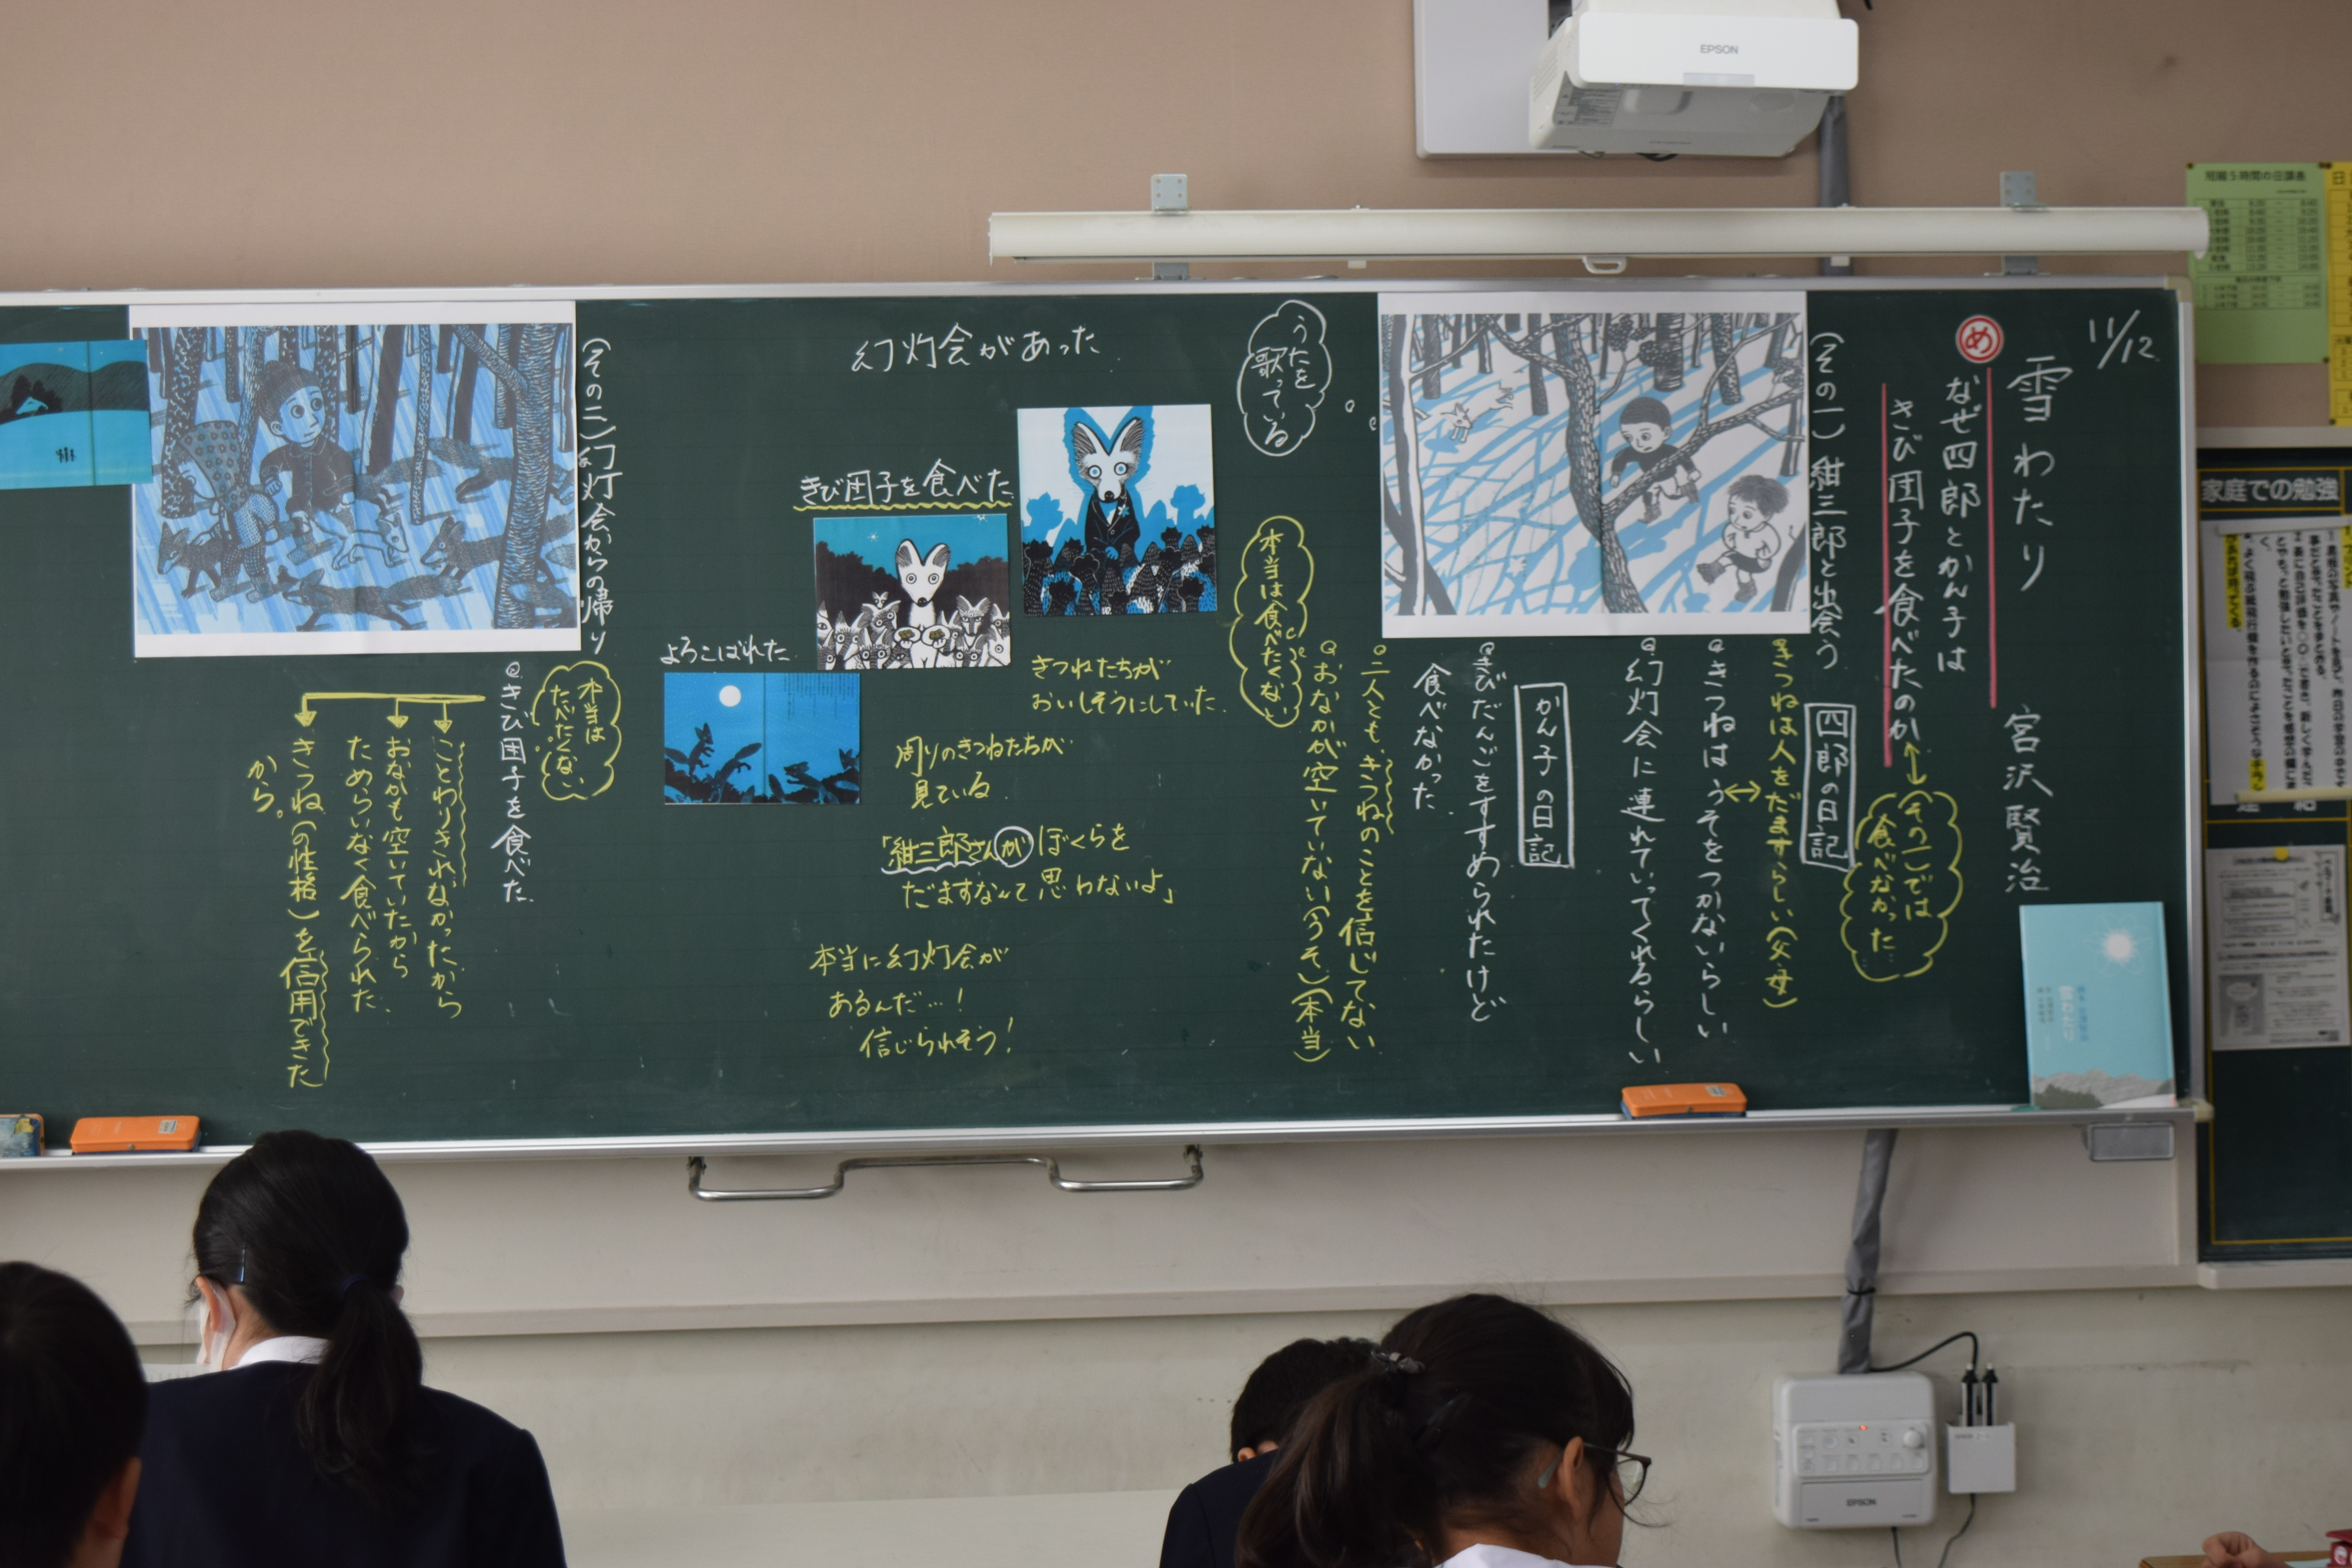 11/12
雪わたり 宮沢賢治
め
なぜ四郎とかん子は
きび団子を食べたのか
その一では
食べなかった
(その一)紺三郎と出会う
四郎の日記
きつねは人をだますらしい(父母)
きつねはうそをつかないらしい
幻灯会に連れていってくれるらしい
かん子の日記
きびだんごをすすめられたけど
食べなかった
二人とも、きつねのことを信じてない
おなかが空いていない(うそ)(本当)
うたを
歌っている
本当は食べたくない
幻灯会があった
きび団子を食べた
よろこばれた
きつねたちが
おいしそうにしていた
周りのきつねたちが
見ている
「紺三郎さんがぼくらを
だますなんて思わないよ」
本当に幻灯会が
あるんだ…!
信じられそう!
(その二)幻灯会からの帰り
本当は
たべたくない
きび団子を食べた
ことわりきれなかったから
おなかも空いていたから
ためらいなく食べられた
きつね(の性格)を信用できた
から。
EPSON
短縮5時間の日課表
家庭での勉強
EPSON